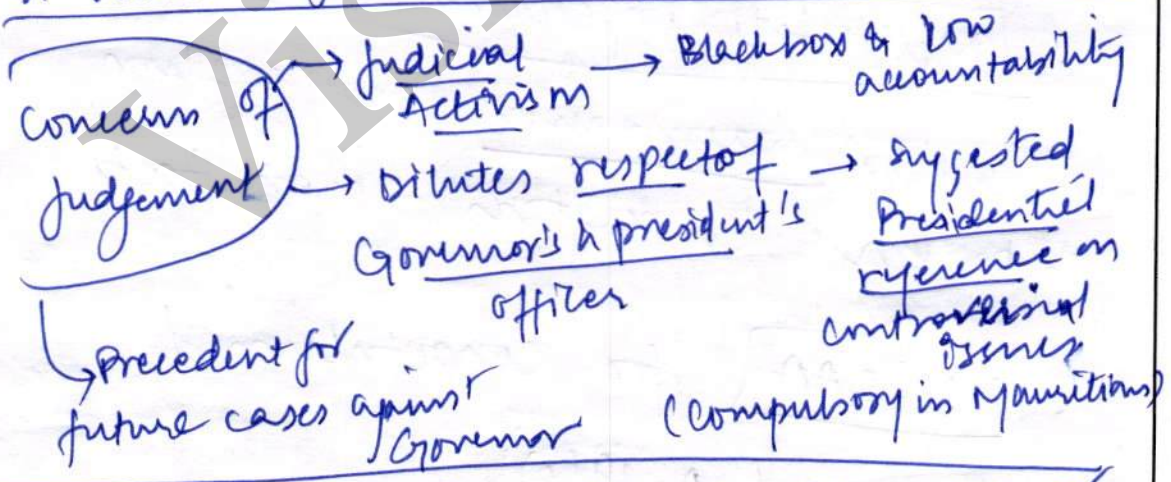 Concern of Judgement
→ Judicial Activism → Blackbox & low accountability
→ Dilutes respect of Governor's & president's offices → suggested Presidential reference on controversial issues
(compulsory in Mauritians)
↳ Precedent for future cases against Governor
Vis